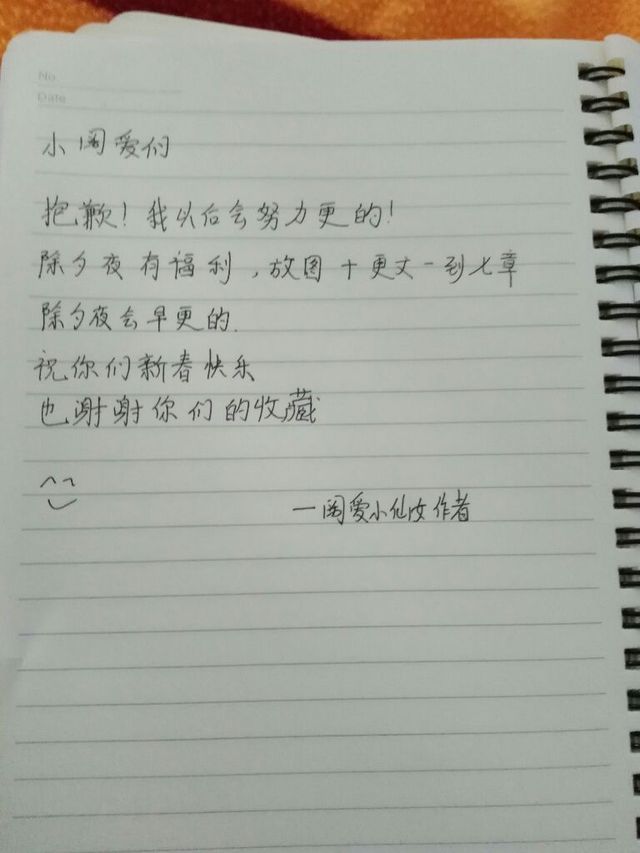 No.
Date
小阁爱们
抱歉！我以后会努力更的！
除夕夜有福利，放图十更丈一到七章
除夕夜会早更的.
祝你们新春快乐
也谢谢你们的收藏
一阁爱小仙女作者